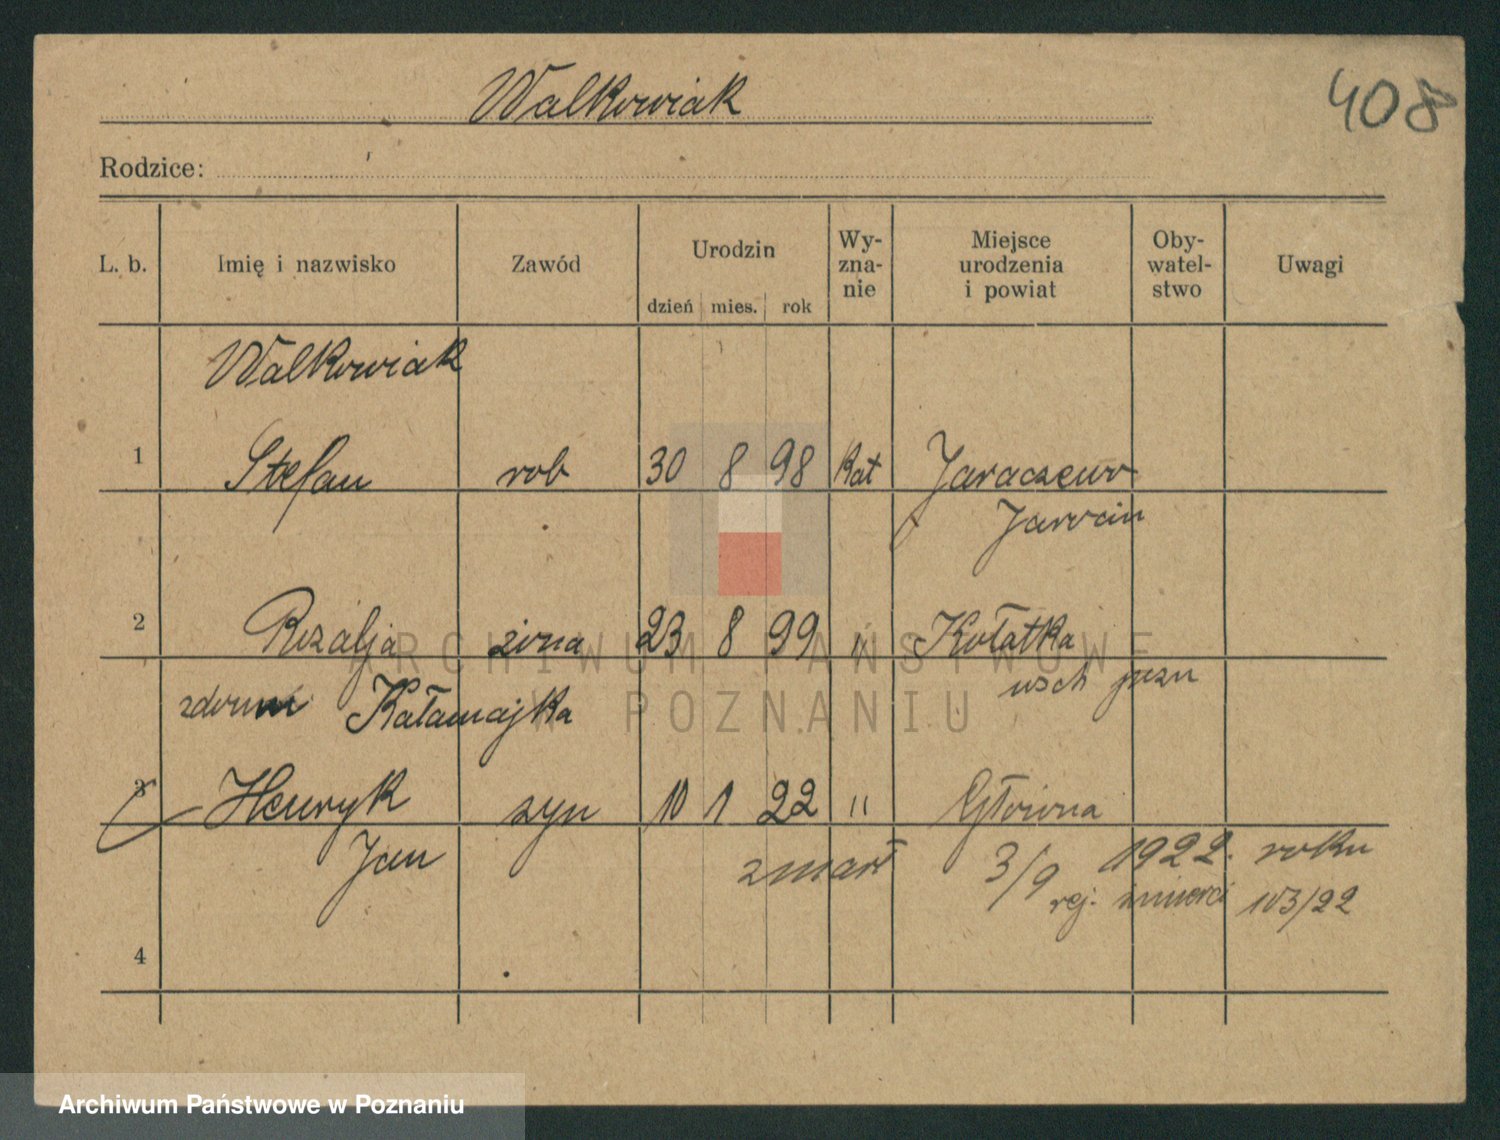 Walkowiak
408
Rodzice:
L. b. Imię i nazwisko Zawód Urodzin dzień mies. rok Wy-zna-nie Miejsce urodzenia i powiat Oby-watel-stwo Uwagi
Walkowiak
1 Stefan rob 30 8 98 Kat Jaraczewo
Jarocin
2 Rozalja żona 23 8 99 " Kołatka
zdomu Kałamajka wsch pozn
3 Henryk syn 10 1 22 " Główna
Jan zmarł 3/9 1922. roku
rej. śmierci 103/22
4
ARCHIWUM PAŃSTWOWE
W POZNANIU
Archiwum Państwowe w Poznaniu